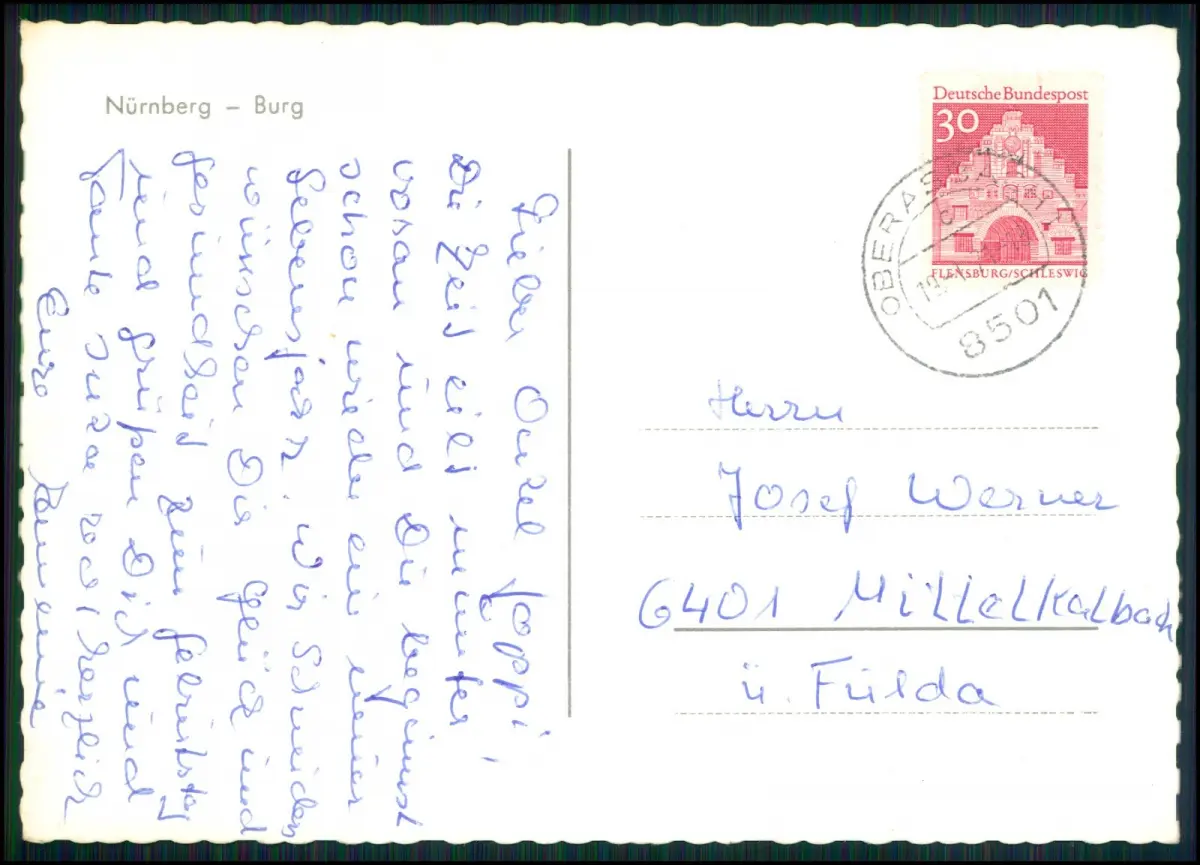 Nürnberg – Burg
Lieber Onkel Joppi,
Die Zeit eilt munter
voran und Du beginnst
schon wieder ein neues
Lebensjahr. Wir Schneiders
wünschen Dir Glück und
Gesundheit zum Geburtstag
und grüßen Dich und
Tante recht herzlich
Eure
Deutsche Bundespost
30
FLENSBURG/SCHLESWIG
8501
Herrn
Josef Werner
6401 Mittelkalbach
ü. Fulda